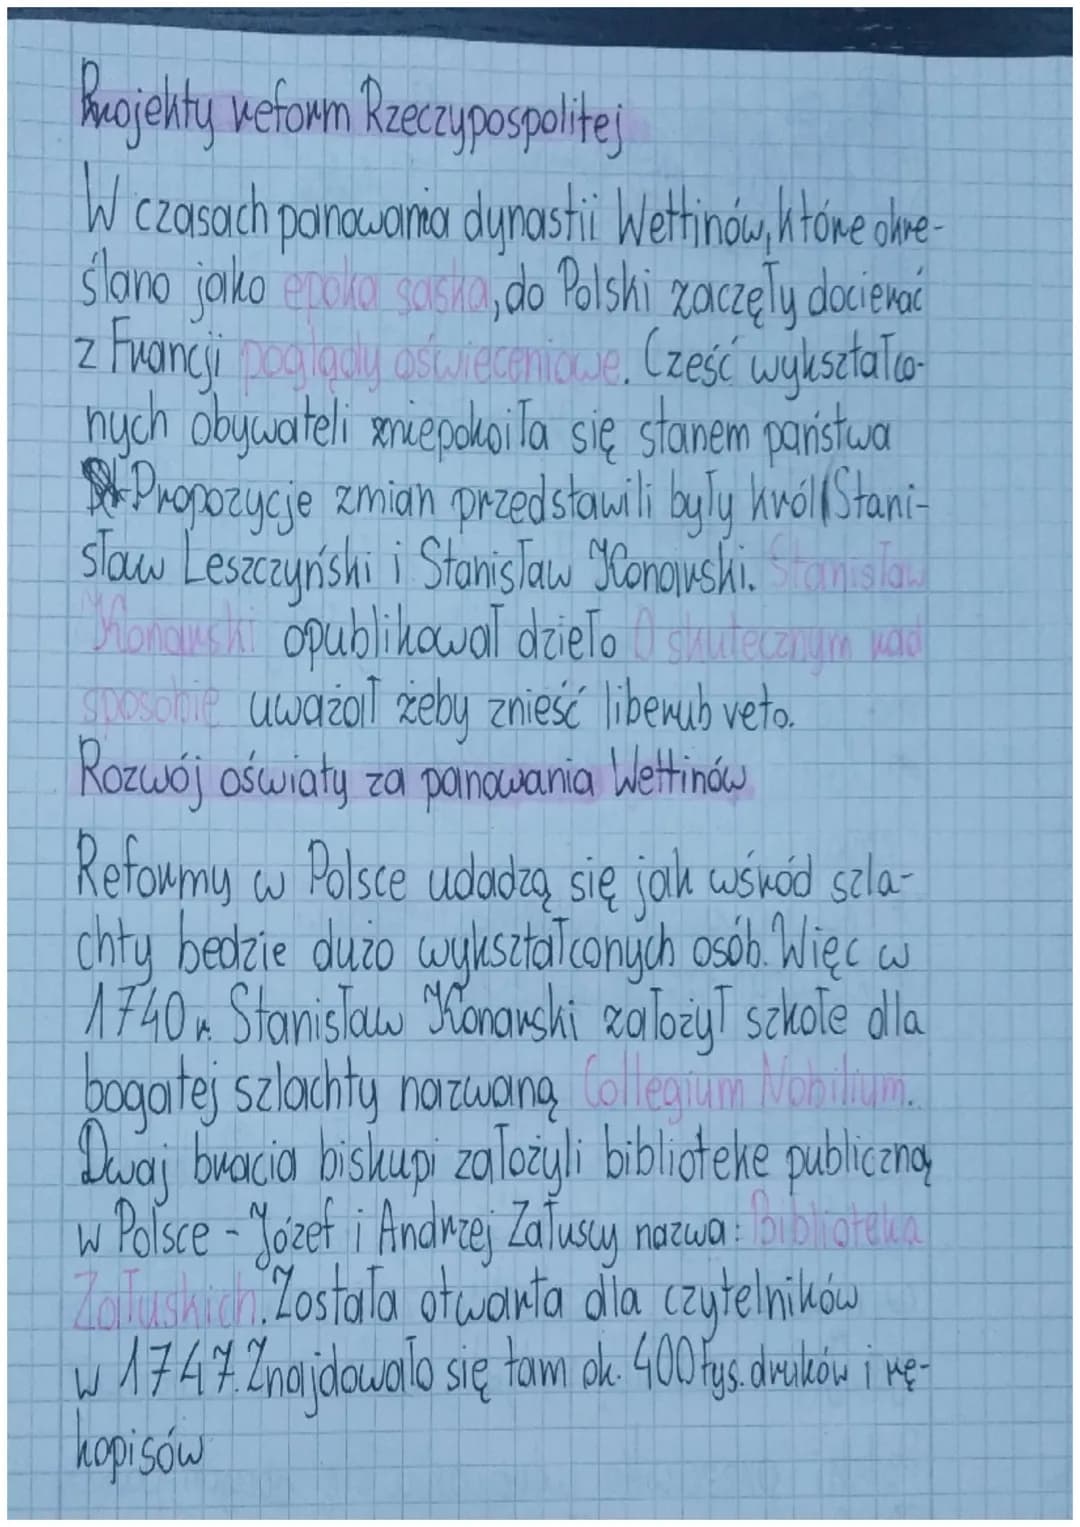 Projekty reform Rzeczypospolitej
W czasach panowania dynastii Wettinów, które okre-
ślano jako epoka saska, do Polski zaczęły docierać
z Francji poglądy oświeceniowe. Cześć wykształco-
nych obywateli zniepokoiła się stanem państwa
Propozycje zmian przedstawili były król Stani-
sław Leszczyński i Stanisław Konarski. Stanisław
Konarski opublikował dzieło O skutecznym rad
sposobie uważał żeby znieść liberub veto.
Rozwój oświaty za panowania Wettinów
Reformy w Polsce udadzą się jak wśród szla-
chty bedzie dużo wykształconych osób. Więc w
1740 r. Stanisław Konarski założył szkołe dla
bogatej szlachty nazwaną Collegium Nobilium.
Dwaj bracia biskupi założyli biblioteke publiczną
w Polsce - Józef i Andrzej Załuscy nazwa: Biblioteka
Załuskich. Została otwarta dla czytelników
w 1747. Znajdowało się tam ok. 400 tys. druków i rę-
kopisów